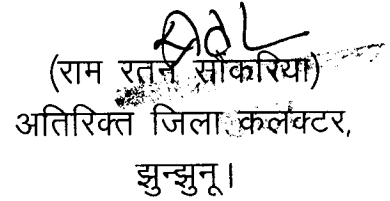 (राम रतन सौंकरिया)
अतिरिक्त जिला कलक्टर,
झुन्झुनू।